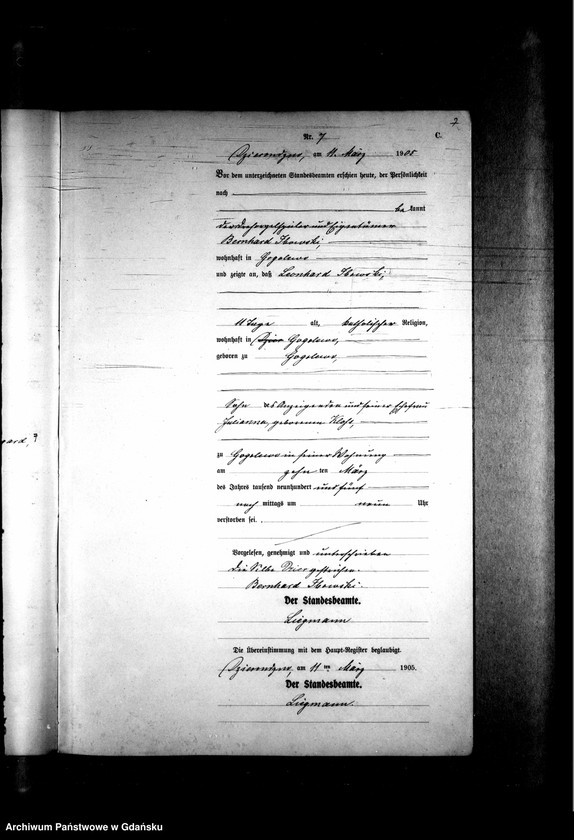 7
Nr. 7 C.
am 11. März 1905
Vor dem unterzeichneten Standesbeamten erschien heute, der Persönlichkeit
nach
be kannt
der Drehorgelspieler und Eigentümer
Bernhard
wohnhaft in Gogolewo
und zeigte an, daß Leonhard
11 Tage alt, katholischer Religion,
wohnhaft in Gogolewo,
geboren zu Gogolewo,
Sohn des Anzeigenden und seiner Ehefrau
Julianna, geborenen
zu Gogolewo in seiner Wohnung
am zehn ten März
des Jahres tausend neunhundert und fünf
nach mittags um neun Uhr
verstorben sei.
Vorgelesen, genehmigt und unterschrieben
Die Silbe gestrichen.
Bernhard
Der Standesbeamte.
Liegmann
Die Übereinstimmung mit dem Haupt-Register beglaubigt.
am 11 ten März 1905.
Der Standesbeamte.
Liegmann.
Archiwum Państwowe w Gdańsku